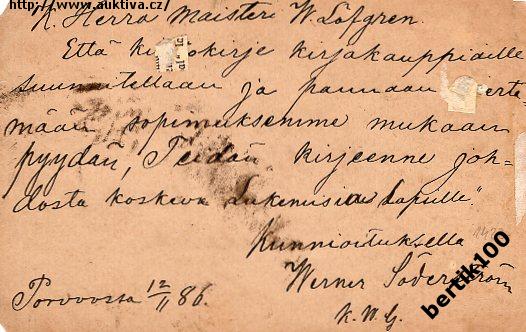 http://www.auktiva.cz/
K. Herra Maisteri W. Löfgren.
Että kirjakauppiaille
suunnitellaan ja pannaan
mään sopimuksemme mukaan
pyydän, Teidän kirjeenne joh-
dosta koskeva Lukemisia Lapsille".
Kunnioituksella
Werner Söderström
K. W. G.
Porvoossa 12/11 86.
bertik100